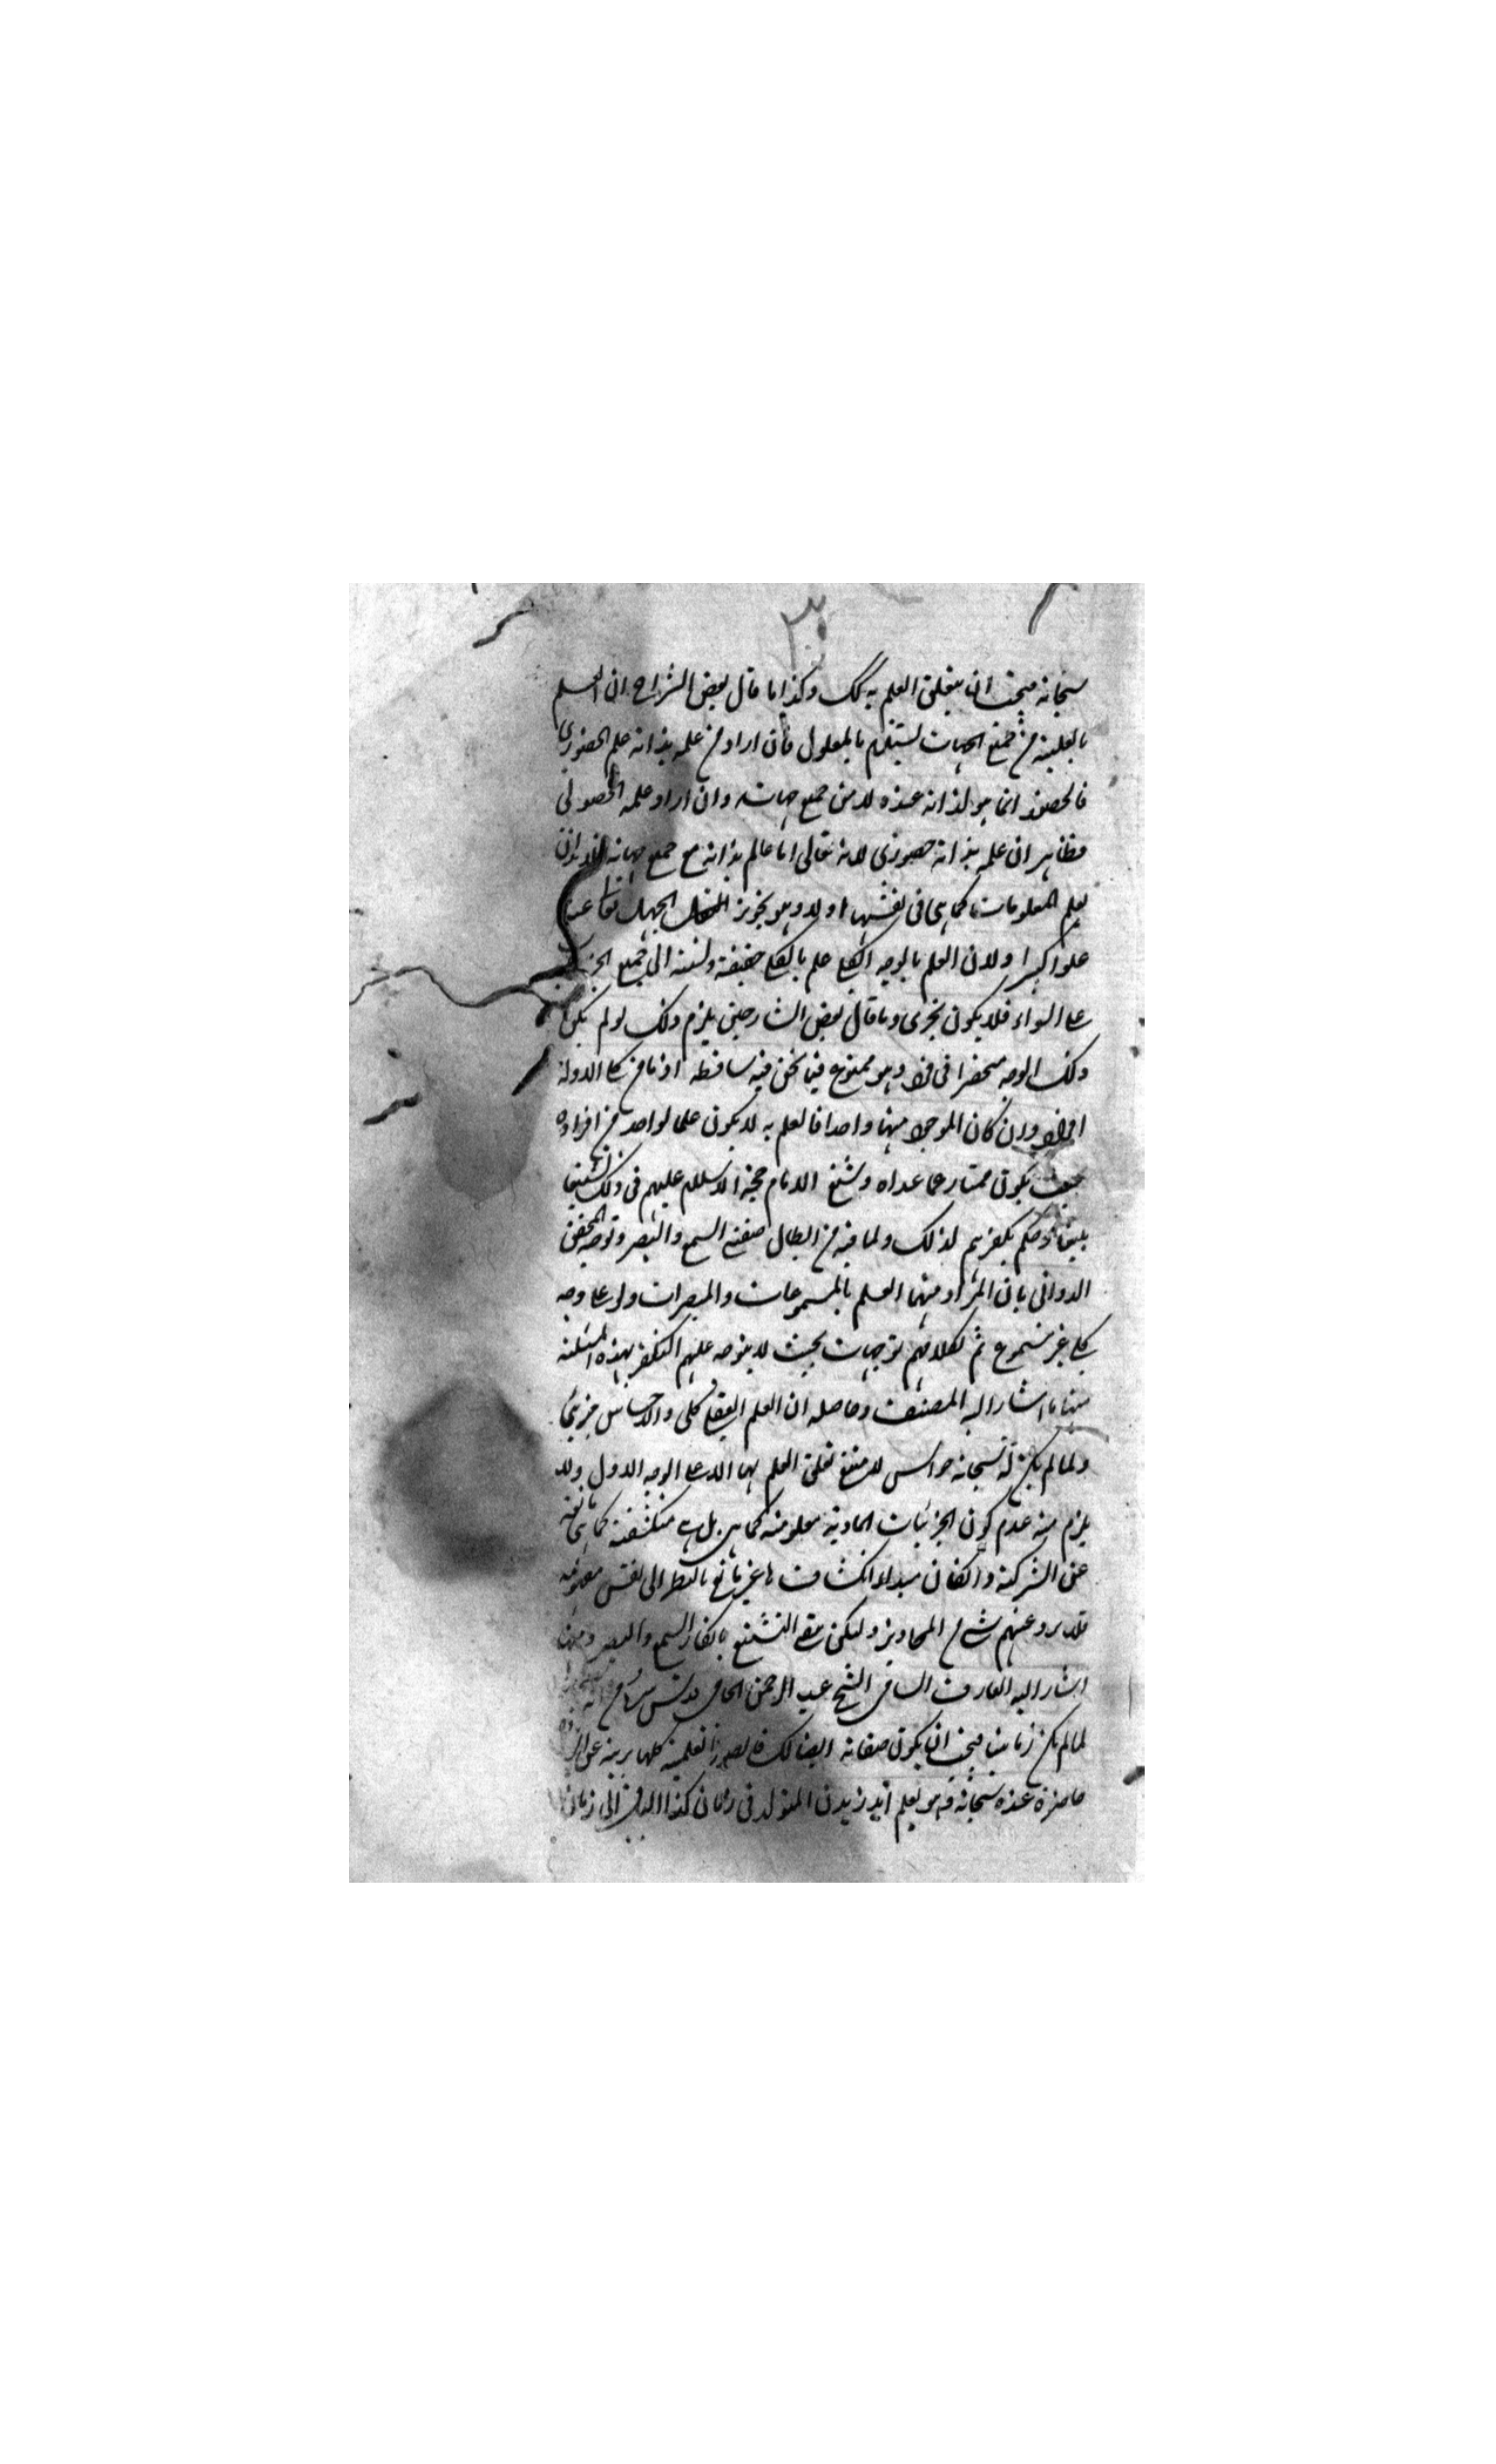 ٣
سبحانه فيجب ان يتعلق العلم به كك وكذا ما قال بعض الشراح ان العلم
بالعلية من جميع الجهات يستلزم بالمعلول فان اراد من علمه بذاته علم الحضوري
فالحضور انما هو لذاته عنده لا من جميع جهاته وان اراد علمه الحصولي
فظاهر ان علمه بذاته حضوري لانه تعالى اما عالم بذاته مع جميع جهاته
يعلم المعلومات كما هي في نفسها اولا وهو تجويز الجهل تعا عنه
علوا كبيرا ولان العلم بالوجه الكلي علم بالكلي حقيقة ونسبته الى جميع
على السواء فلا يكون بجزئي وما قال بعض الشارحين يلزم ذلك لو لم يكن
ذلك الوجه منحصرا في فرد وهو ممنوع فيما نحن فيه ساقط اذ ما من كلي الا وله
افراد وان كان الموجود منها واحدا فالعلم به لا يكون علما لواحد من افراده
بحيث يكون ممتازا عما عداه وشنع الامام حجة الاسلام عليهم في ذلك تشنيعا
بليغا وحكم بكفرهم لذلك ولما فيه من ابطال صفتي السمع والبصر وتوجيه المحقق
الدواني بان المراد منهما العلم بالمسموعات والمبصرات ولو على وجه
كلي غير مسموع ثم لكلامهم توجيهات بحيث لا يتوجه عليهم التكفير بهذه المسئلة
منها ما اشار اليه المصنف وحاصله ان العلم التعقلي كلي والاحساس جزئي
ولما لم يكن له سبحانه حواس لا يتعلق العلم بها الا على الوجه الاول ولا
يلزم منه عدم كون الجزئيات المادية معلومة كما هي بل هي منكشفة كما هي
عن الشركة وان كان مبداء انكشافها غير مانع بالنظر الى نفس مفهومه
فلا يرد عنهم شئ من المحاذير ولكن بقي التشنيع بانكار السمع والبصر ومنها
اشار اليه العارف السامي الشيخ عبد الرحمن الجامي قدس سره
لما لم يكن زمانيا فيجب ان يكون صفاته ايضا كك فالصور العلمية كلها بريئة عن
حاضرة عنده سبحانه فهو يعلم ان زيدن المتولد في زمان كذا الباقي الى زمان